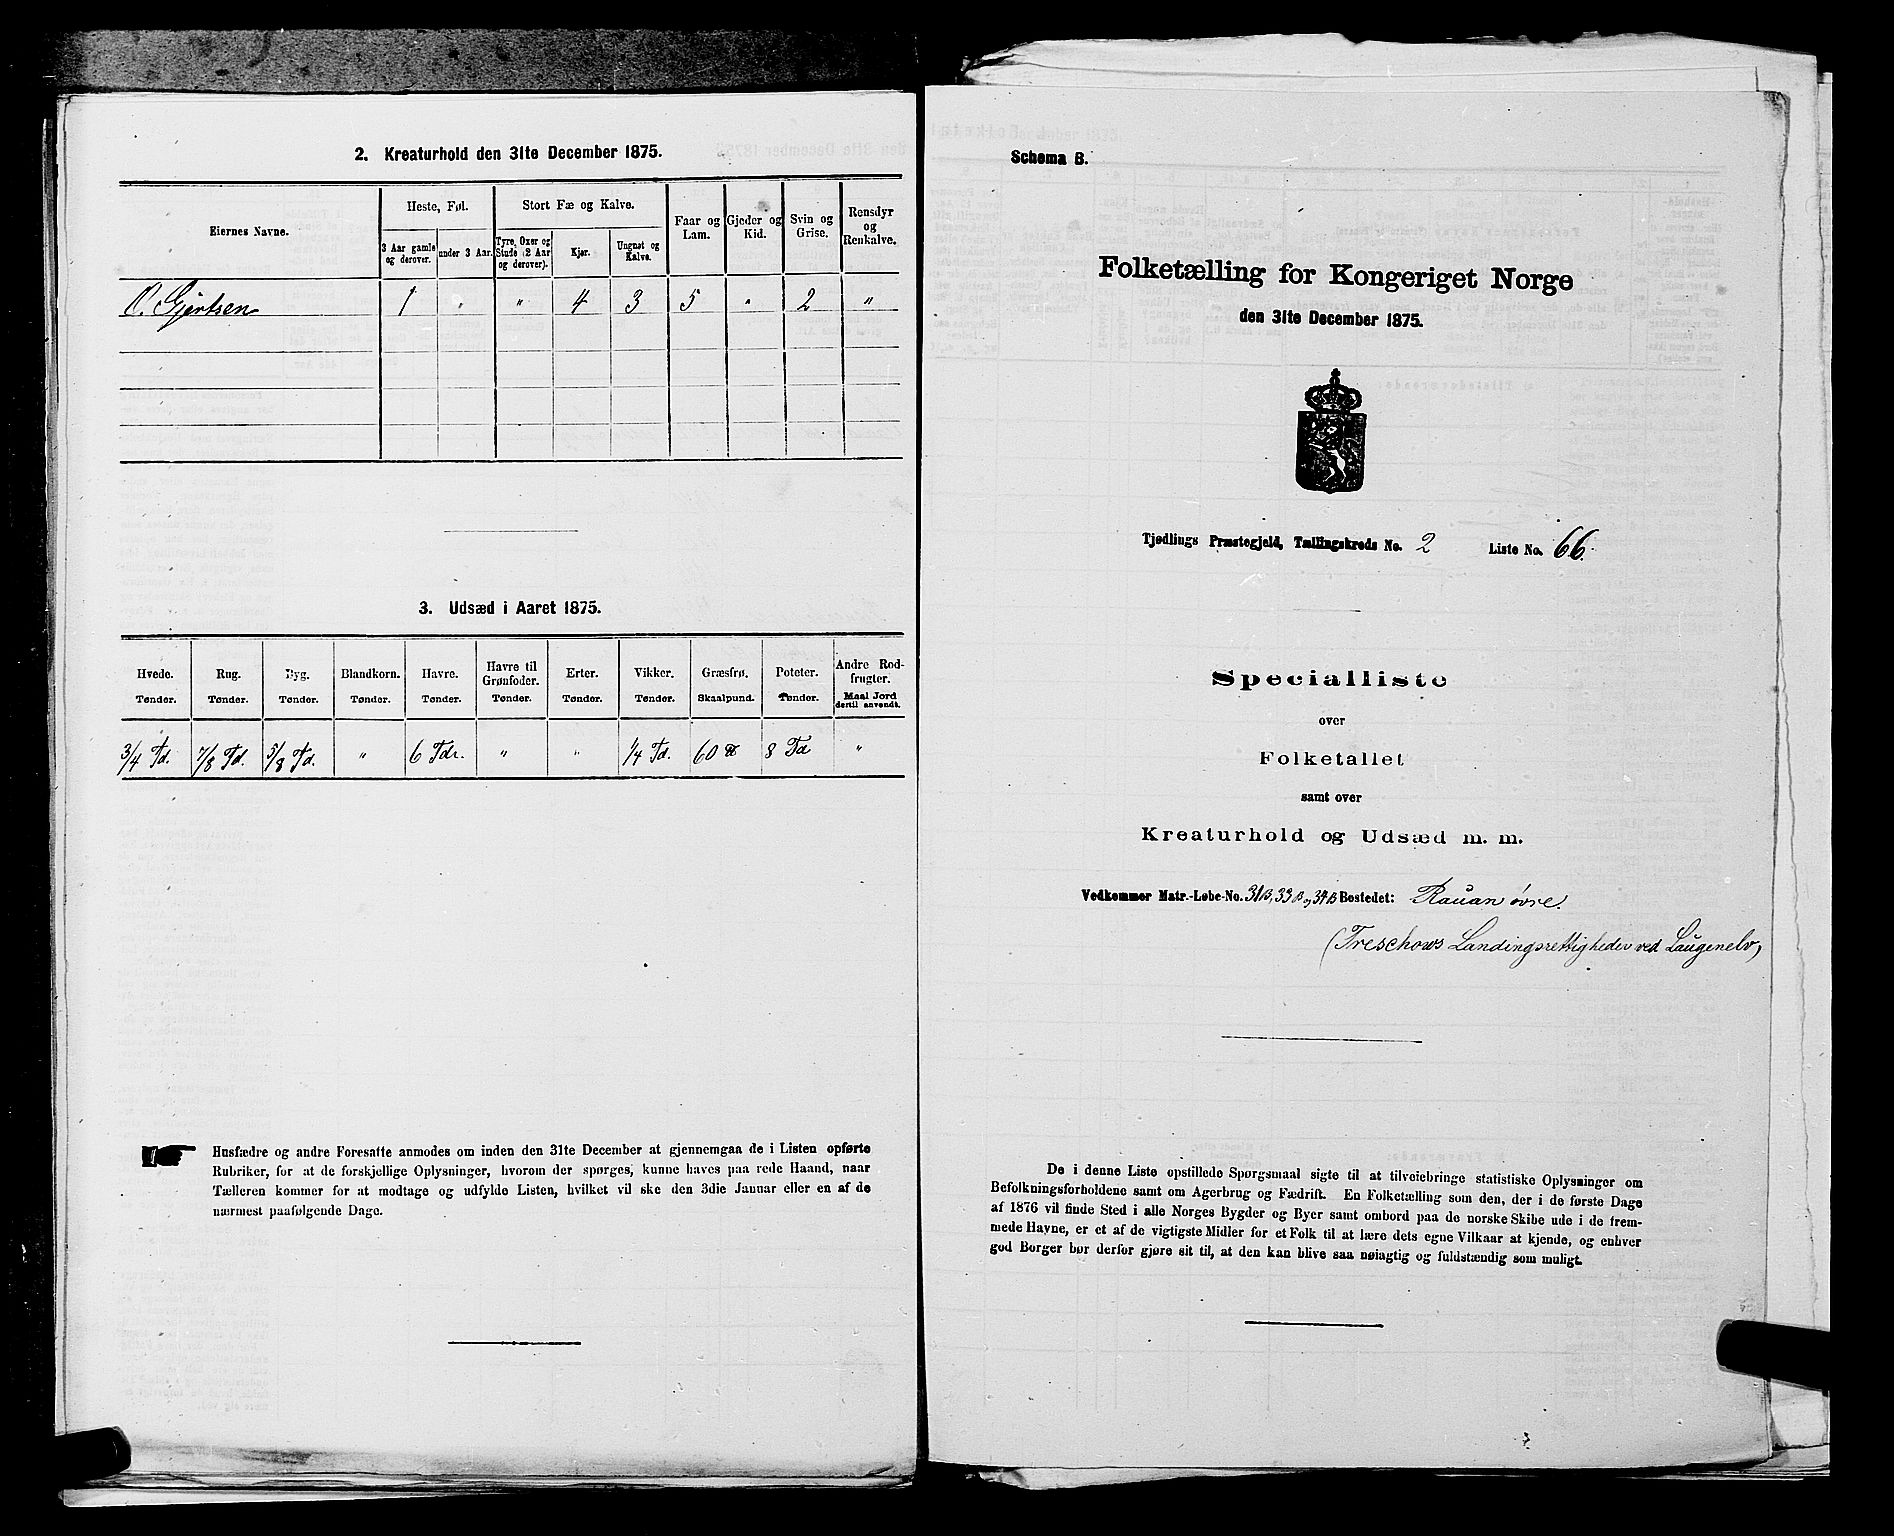 2. Kreaturhold den 31te December 1875.
Eiernes Navne.
Heste, Føl.
Stort Fæ og Kalve.
Faar og Lam.
Gjeder og Kid.
Svin og Grise.
Rensdyr og Renkalve.
3 Aar gamle og derover.
under 3 Aar.
Tyre, Oxer og Stude (2 Aar og derover).
Kjør.
Ungnøt og Kalve.
O. Gjertsen 1 " " 4 3 5 " 2 "
3. Udsæd i Aaret 1875.
Hvede. Rug. Byg. Blandkorn. Havre. Havre til Grønfoder. Erter. Vikker. Græsfrø. Poteter. Andre Rodfrugter.
Tønder. Tønder. Tønder. Tønder. Tønder. Tønder. Tønder. Tønder. Skaalpund. Tønder. Maal Jord dertil anvendt.
3/4 Td. 7/8 Td. 5/8 Td. " 6 Tdr. " " 1/4 Td. 60 ℔ 8 Td "
Husfædre og andre Foresatte anmodes om inden den 31te December at gjennemgaa de i Listen opførte
Rubriker, for at de forskjellige Oplysninger, hvorom der spørges, kunne haves paa rede Haand, naar
Tælleren kommer for at modtage og udfylde Listen, hvilket vil ske den 3die Januar eller en af de
nærmest paafølgende Dage.
Schema B.
Folketælling for Kongeriget Norge
den 31te December 1875.
Tjødlings Præstegjeld, Tællingskreds No. 2 Liste No. 66.
Specialliste
over
Folketallet
samt over
Kreaturhold og Udsæd m. m.
Vedkommer Matr.-Løbe-No. 31B, 33B og 34B Bostedet: Rauan øvre.
(Treschows Landingsrettigheder ved Laugenelv)
De i denne Liste opstillede Spørgsmaal sigte til at tilveiebringe statistiske Oplysninger om
Befolkningsforholdene samt om Agerbrug og Fædrift. En Folketælling som den, der i de første Dage
af 1876 vil finde Sted i alle Norges Bygder og Byer samt ombord paa de norske Skibe ude i de frem-
mede Havne, er et af de vigtigste Midler for et Folk til at lære dets egne Vilkaar at kjende, og enhver
god Borger bør derfor gjøre sit til, at den kan blive saa nøiagtig og fuldstændig som muligt.